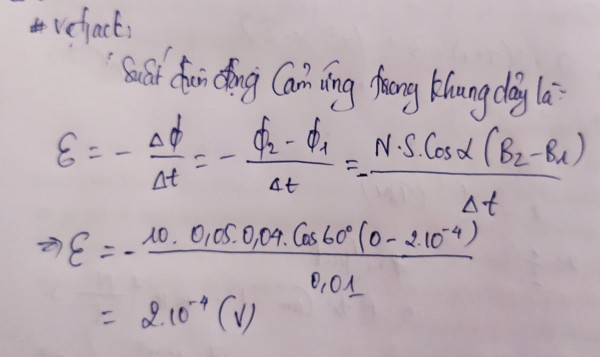 # vẽ hạt:
Suất điện động Cảm ứng trong khung dây là:
ε = - Δϕ/Δt = - (ϕ₂ - ϕ₁)/Δt = - N.S.Cosα (B₂ - B₁)/Δt
⇒ ε = - 10. 0,05. 0,04. Cos 60° (0 - 2.10⁻⁴)/0,01
= 2.10⁻⁴ (V)